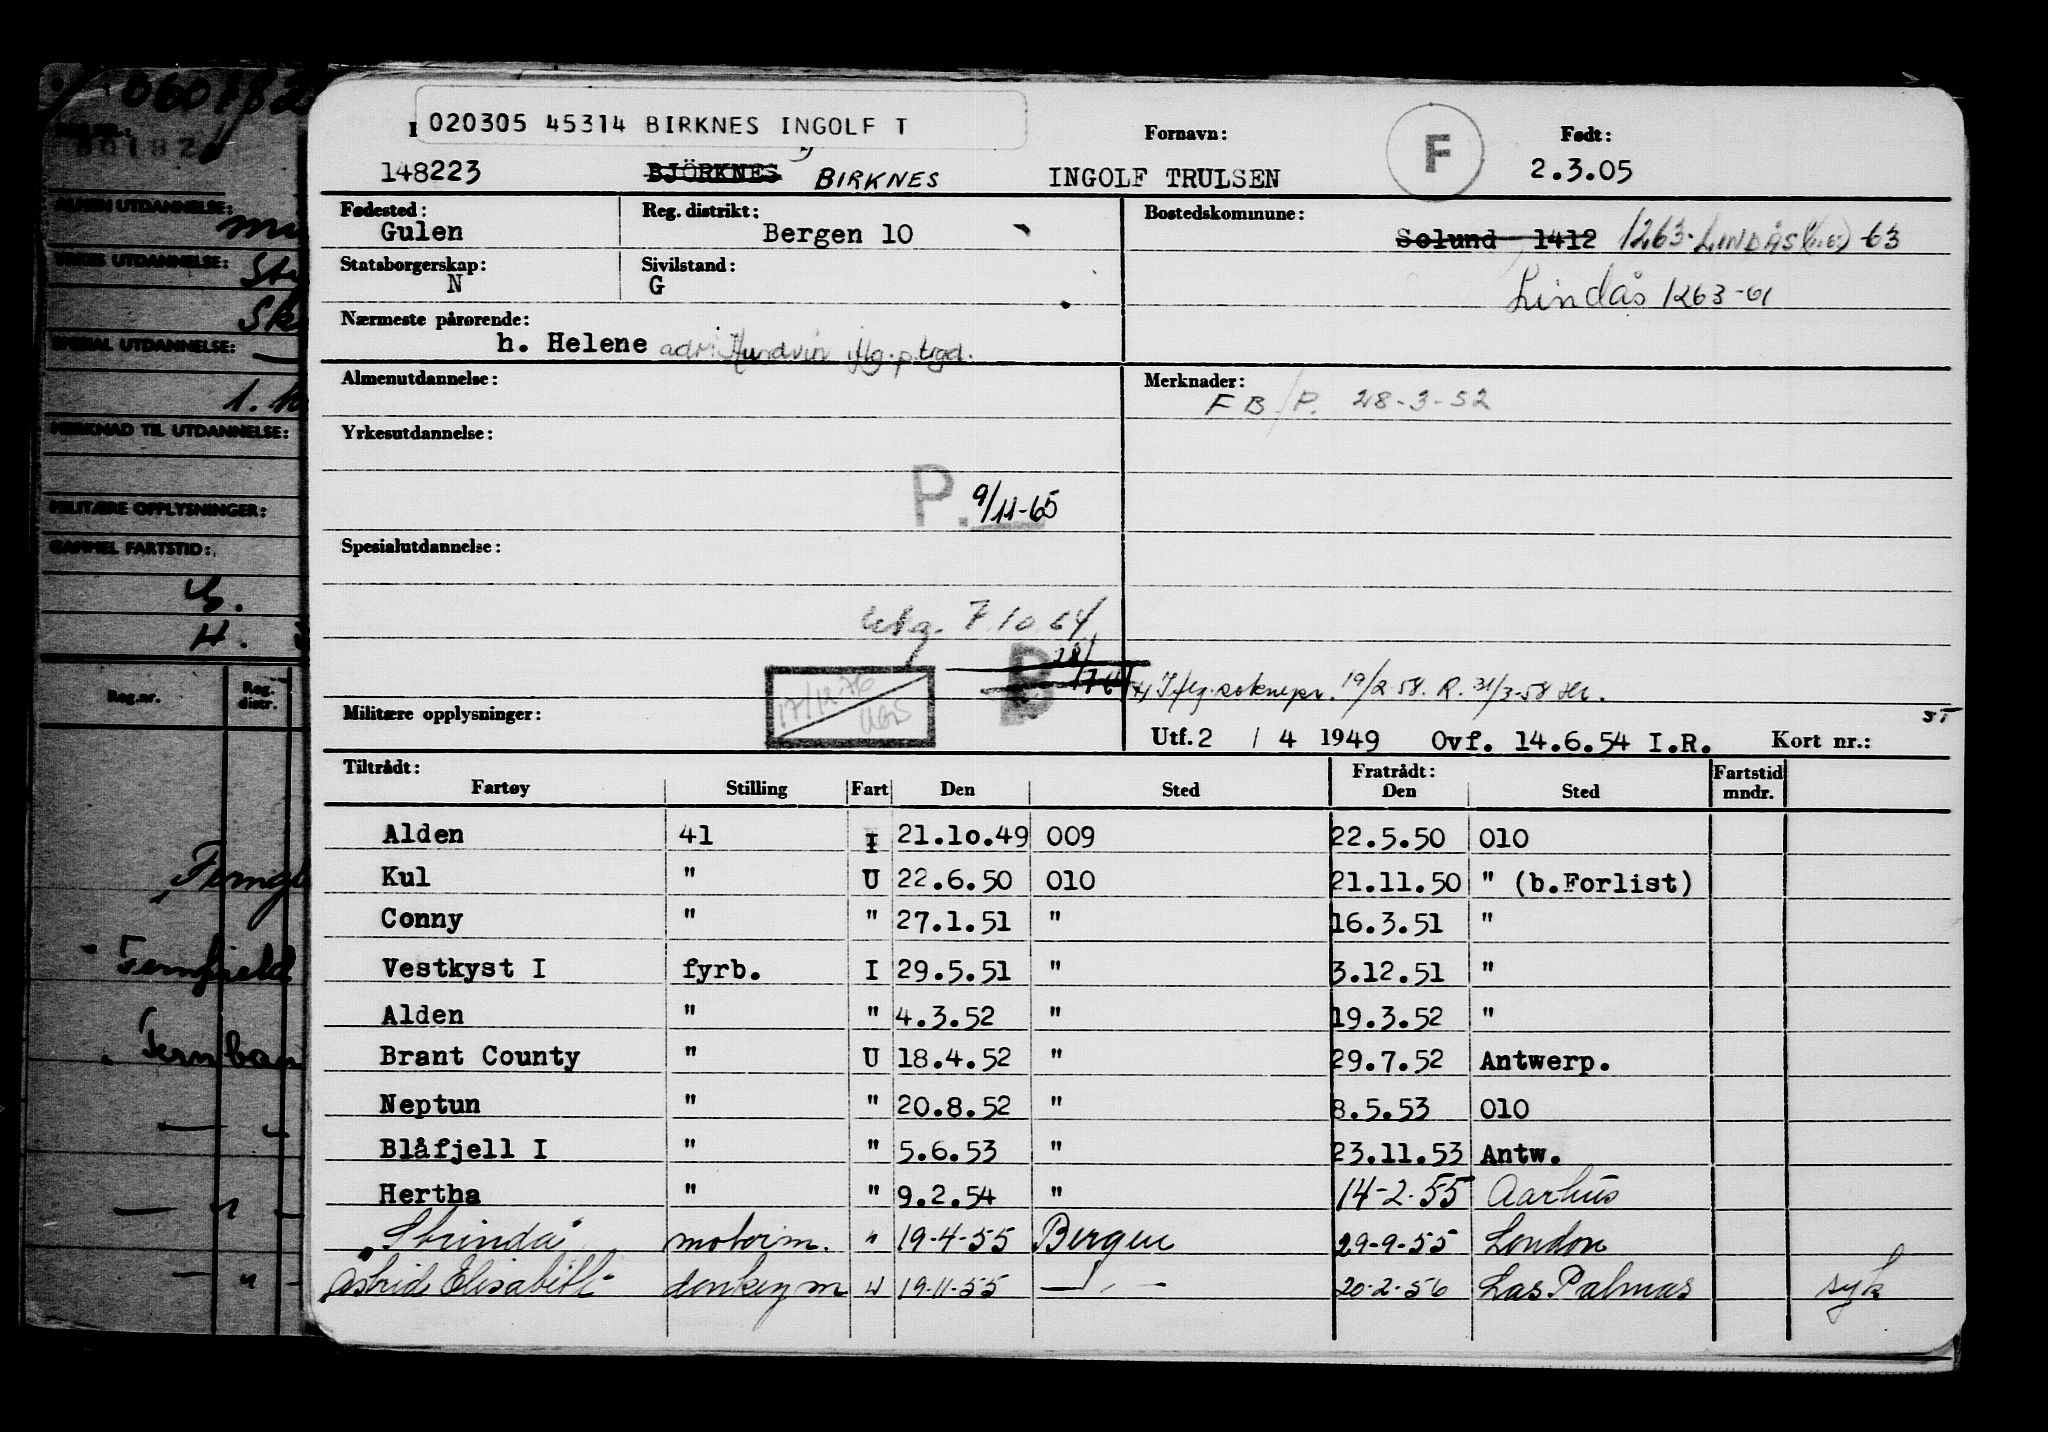 060182
020305 45314 BIRKNES INGOLF T
Fornavn:
F
Født:
148223 BJÖRKNES BIRKNES INGOLF TRULSEN 2.3.05
Fødested: Reg. distrikt: Bostedskommune:
Gulen Bergen 10 Solund 1412 1263-LINDÅS -63
Statsborgerskap: Sivilstand:
N G Lindås 1263-61
Nærmeste pårørende:
h. Helene adr: Hundvin iflg. p.trgd.
Almenutdannelse: Merknader:
FB/P. 28-3-52
Yrkesutdannelse:
P. 9/11-65
Spesialutdannelse:
utg. 7.10.64
B
17/12-76
Iflg. 19/2-58. R. 31/3-58
Militære opplysninger: Utf. 2 / 4 1949 Ovf. 14.6.54 I.R. Kort nr.:
Tiltrådt: Fratrådt: Fartstid
Fartøy Stilling Fart Den Sted Den Sted mndr.
Alden 41 I 21.10.49 009 22.5.50 010
Kul " U 22.6.50 010 21.11.50 " (b.Forlist)
Conny " " 27.1.51 " 16.3.51 "
Vestkyst I fyrb. I 29.5.51 " 3.12.51 "
Alden " " 4.3.52 " 19.3.52 "
Brant County " U 18.4.52 " 29.7.52 Antwerp.
Neptun " " 20.8.52 " 8.5.53 010
Blåfjell I " " 5.6.53 " 23.11.53 Antw.
Hertha " " 9.2.54 " 14-2-55 Aarhus
"Strinda" motorm. " 19-4-55 Bergen 29-9-55 London
Astrid Elisabeth donkeym " 19-11-55 — " — 20-2-56 Las Palmas syk
ALMEN UTDANNELSE:
YRKES UTDANNELSE:
SPESIAL UTDANNELSE:
MERKNAD TIL UTDANNELSE:
MILITÆRE OPPLYSNINGER:
GAMMEL FARTSTID:
Reg.nr. Reg. distr.
Fernfield